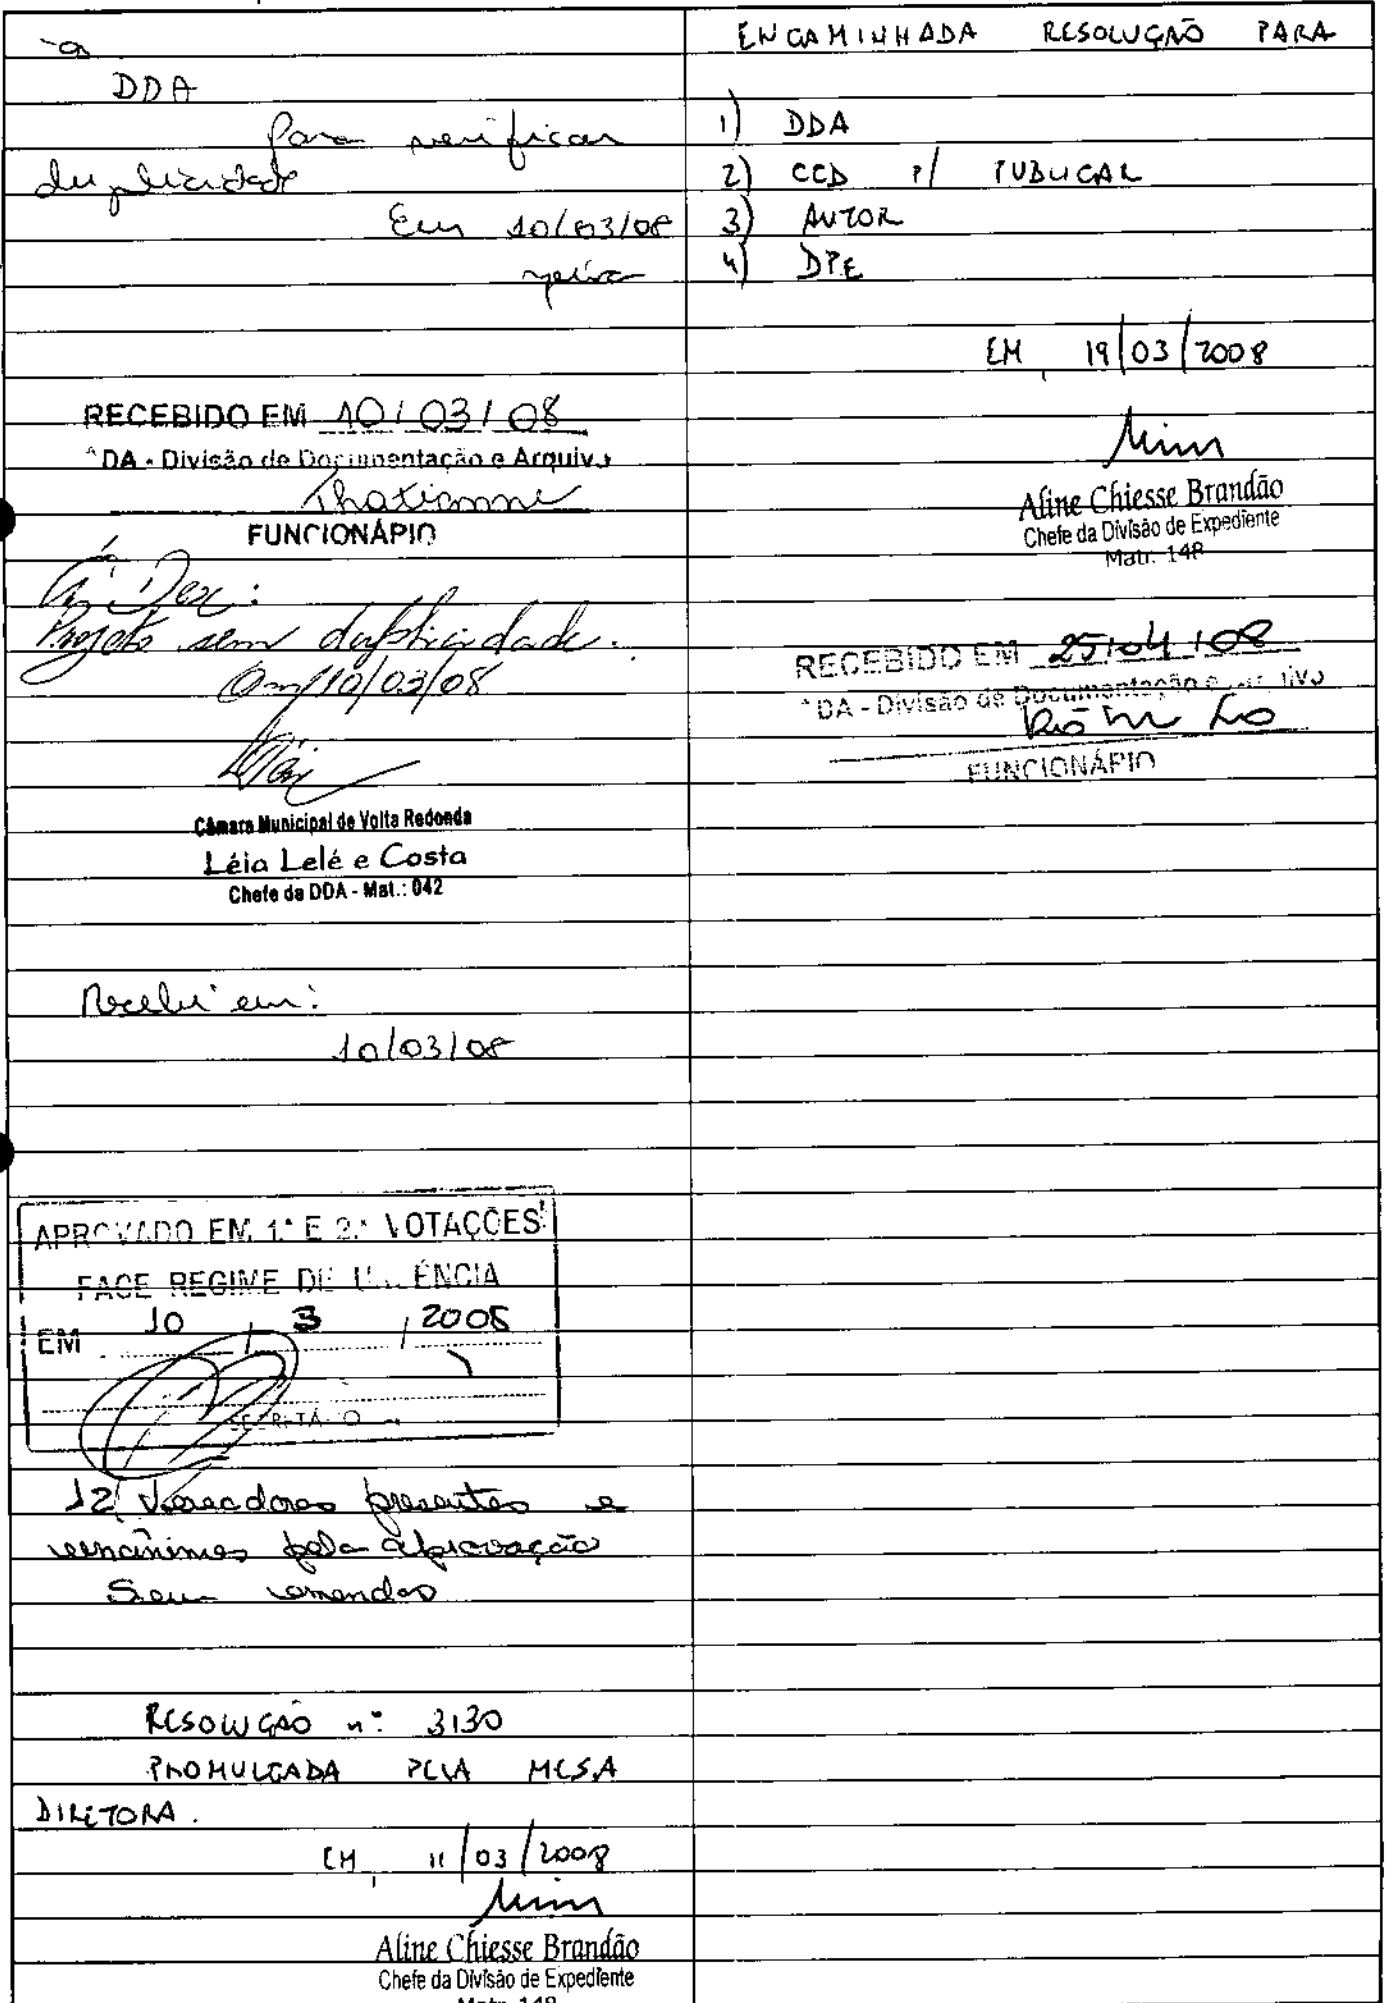 à
DDA
Para verificar
duplicidade
Em 10/03/08
RECEBIDO EM 10/03/08
DA - Divisão de Documentação e Arquivo
Thatianne
FUNCIONÁRIO
Projeto sem duplicidade.
Em 10/03/08
Câmara Municipal de Volta Redonda
Léia Lelé e Costa
Chefe da DDA - Mat.: 042
Recebi em:
10/03/08
APROVADO EM 1.ª E 2.ª VOTAÇÕES
FACE REGIME DE URGÊNCIA
EM 10 / 3 / 2008
SECRETÁRIO
12 Vereadores presentes e
unânimes pela aprovação
Sem emendas
RESOLUÇÃO nº 3130
PROMULGADA PELA MESA
DIRETORA.
EM, 11/03/2008
Aline Chiesse Brandão
Chefe da Divisão de Expediente
Matr. 148
ENCAMINHADA RESOLUÇÃO PARA
1) DDA
2) CCD P/ PUBLICAR
3) AUTOR
4) DPE
EM, 19/03/2008
Aline Chiesse Brandão
Chefe da Divisão de Expediente
Matr. 148
RECEBIDO EM 25/04/08
DA - Divisão de Documentação e Arquivo
FUNCIONÁRIO